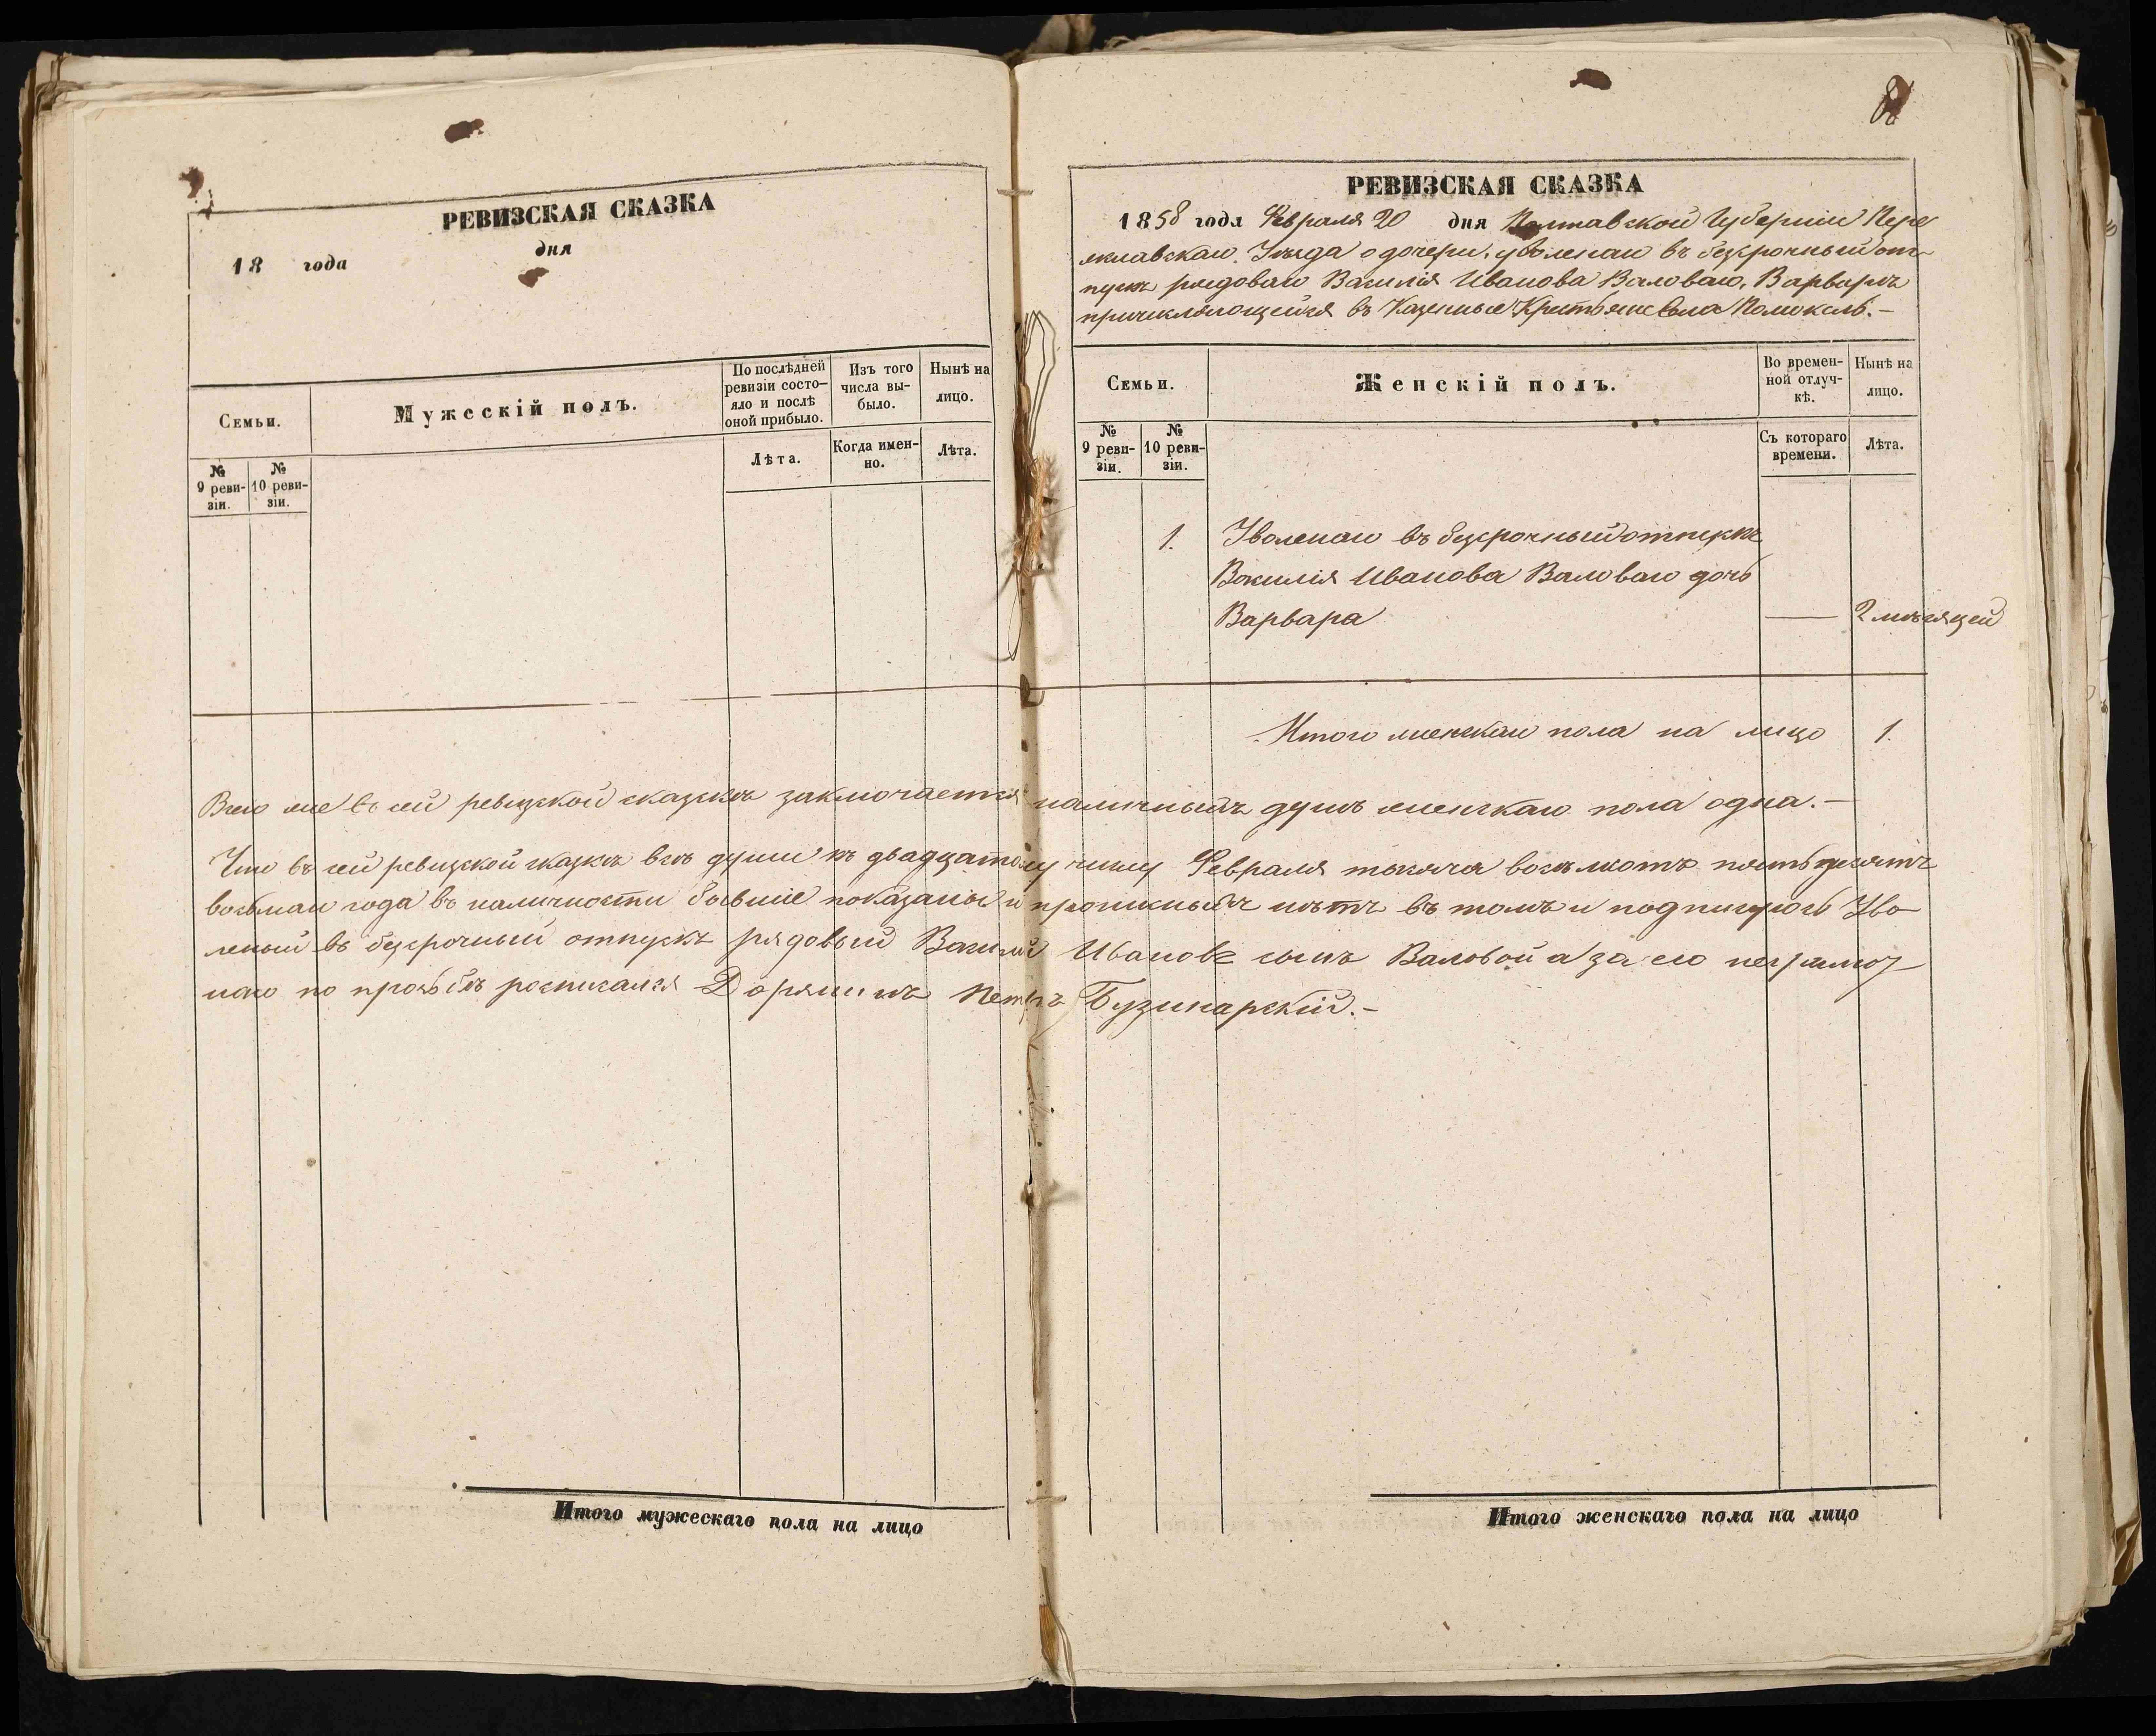 РЕВИЗСКАЯ СКАЗКА
18 года дня
Семьи.
Мужескій полъ.
По послѣдней ревизіи состо-яло и послѣ оной прибыло.
Изъ того числа вы-было.
Нынѣ на лицо.
№ 9 реви-зіи.
№ 10 реви-зіи.
Лѣта.
Когда имен-но.
Лѣта.
РЕВИЗСКАЯ СКАЗКА
1858 года Февраля 20 дня Полтавской Губерніи Пере
яславскаго Уѣзда о дочери, уволенаго въ безсрочный от-
пускъ рядоваго Василія Иванова Валоваго, Варварѣ
причисляющейся въ Казенные Крестьяне Села Помоклѣ.-
Семьи.
Женскій полъ.
Во времен-ной отлуч-кѣ.
Нынѣ на лицо.
№ 9 реви-зіи.
№ 10 реви-зіи.
Съ котораго времени.
Лѣта.
1. Уволенаго въ безсрочный отпускъ
Василія Иванова Валоваго дочь
Варвара — 2 мѣсяцей
Итого женскаго пола на лицо 1.
Всего же въ сей ревизской сказкѣ заключается наличныхъ душъ женскаго пола одна.-
Что въ сей ревизской сказкѣ всѣ души къ двадцатому числу Февраля тысяча восѣмсотъ пятьдесятъ
восьмаго года въ наличности бывшіе показаны и прописныхъ нѣтъ въ томъ и подписуюсь Уво-
леный въ безсрочный отпускъ рядовый Василій Ивановъ сынъ Валовой а за его неграмот-
наго по прозьбѣ росписался Дорянинъ Петръ Бузинарскій.-
Итого мужескаго пола на лицо
Итого женскаго пола на лицо